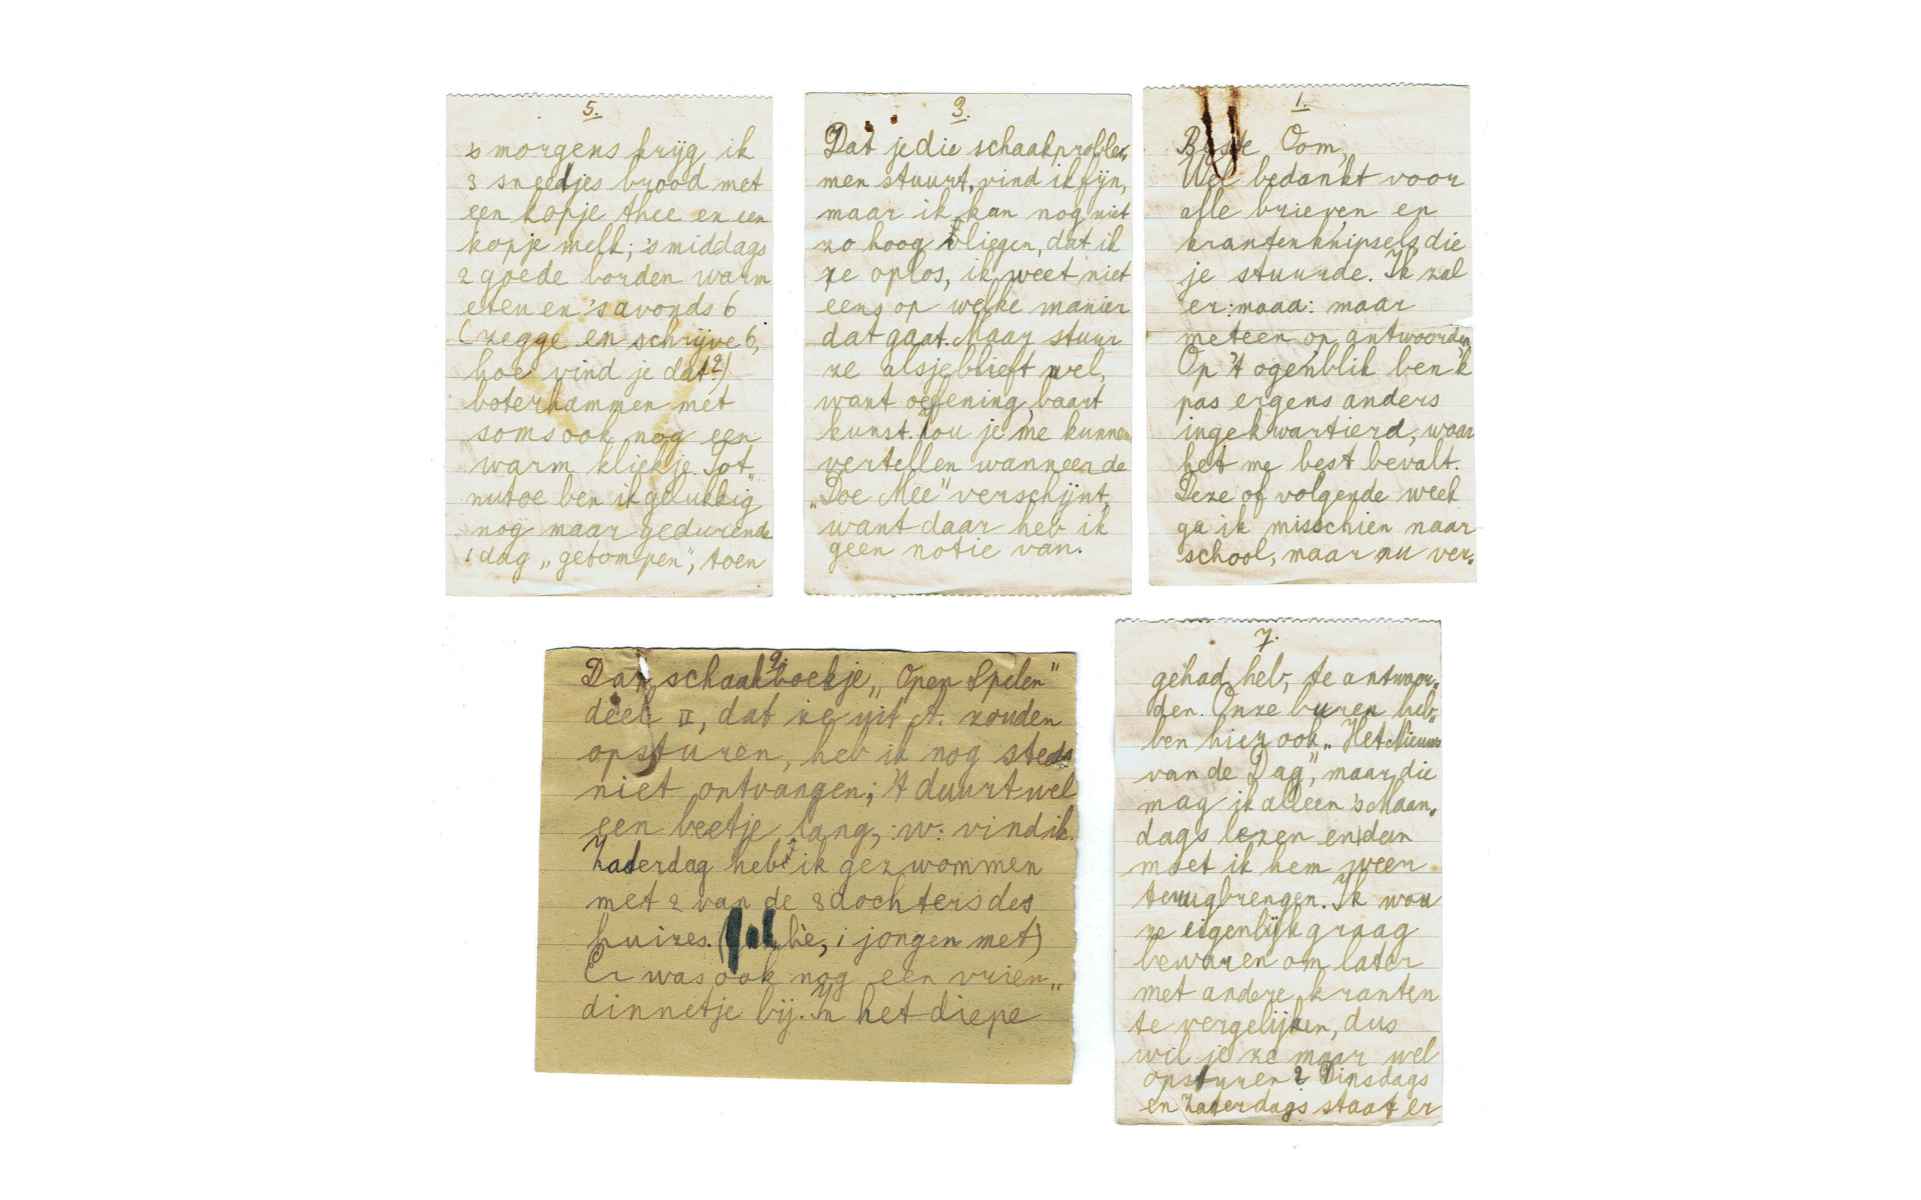 1.
Beste Oom,
Wel bedankt voor
alle brieven en
krantenknipsels die
je stuurde. Ik zal
er :maaa: maar
meteen op antwoorden
Op 't ogenblik ben 'k
pas ergens anders
ingekwartierd, waar
het me best bevalt.
Deze of volgende week
ga ik misschien naar
school, maar nu ver-
3.
Dat je die schaakproble-
men stuurt, vind ik fijn,
maar ik kan nog niet
zo hoog vliegen, dat ik
ze oplos, ik weet niet
eens op welke manier
dat gaat. Maar stuur
ze alsjeblieft wel,
want oefening baart
kunst. Zou je me kunnen
vertellen wanneer de
„Doe Mee" verschijnt,
want daar heb ik
geen notie van.
5.
's morgens krijg ik
3 sneedjes brood met
een kopje thee en een
kopje melk; 's middags
2 goede borden warm
eten en 's avonds 6
(zegge en schrijve 6,
hoe vind je dat?)
boterhammen met
soms ook nog een
warm kliekje. Tot
nutoe ben ik gelukkig
nog maar gedurende
1 dag „gebompen", toen
7.
gehad heb, te antwoor-
den. Onze buren heb-
ben hier ook „Het Nieuws
van de Dag", maar die
mag ik alleen 's Maan-
dags lezen en dan
moet ik hem weer
terugbrengen. Ik wou
ze eigenlijk graag
bewaren om later
met andere kranten
te vergelijken, dus
wil je ze maar wel
opsturen? Dinsdags
en Zaterdags staat er
9.
Dat schaakboekje „Open Spelen"
deel II, dat ze uit A. zouden
opsturen, heb ik nog steeds
niet ontvangen; 't duurt wel
een beetje lang, :w: vind ik.
Zaterdag heb ik gezwommen
met 2 van de 8 dochters des
huizes. ( hè, 1 jongen met)
Er was ook nog een vrien„
dinnetje bij. In het diepe